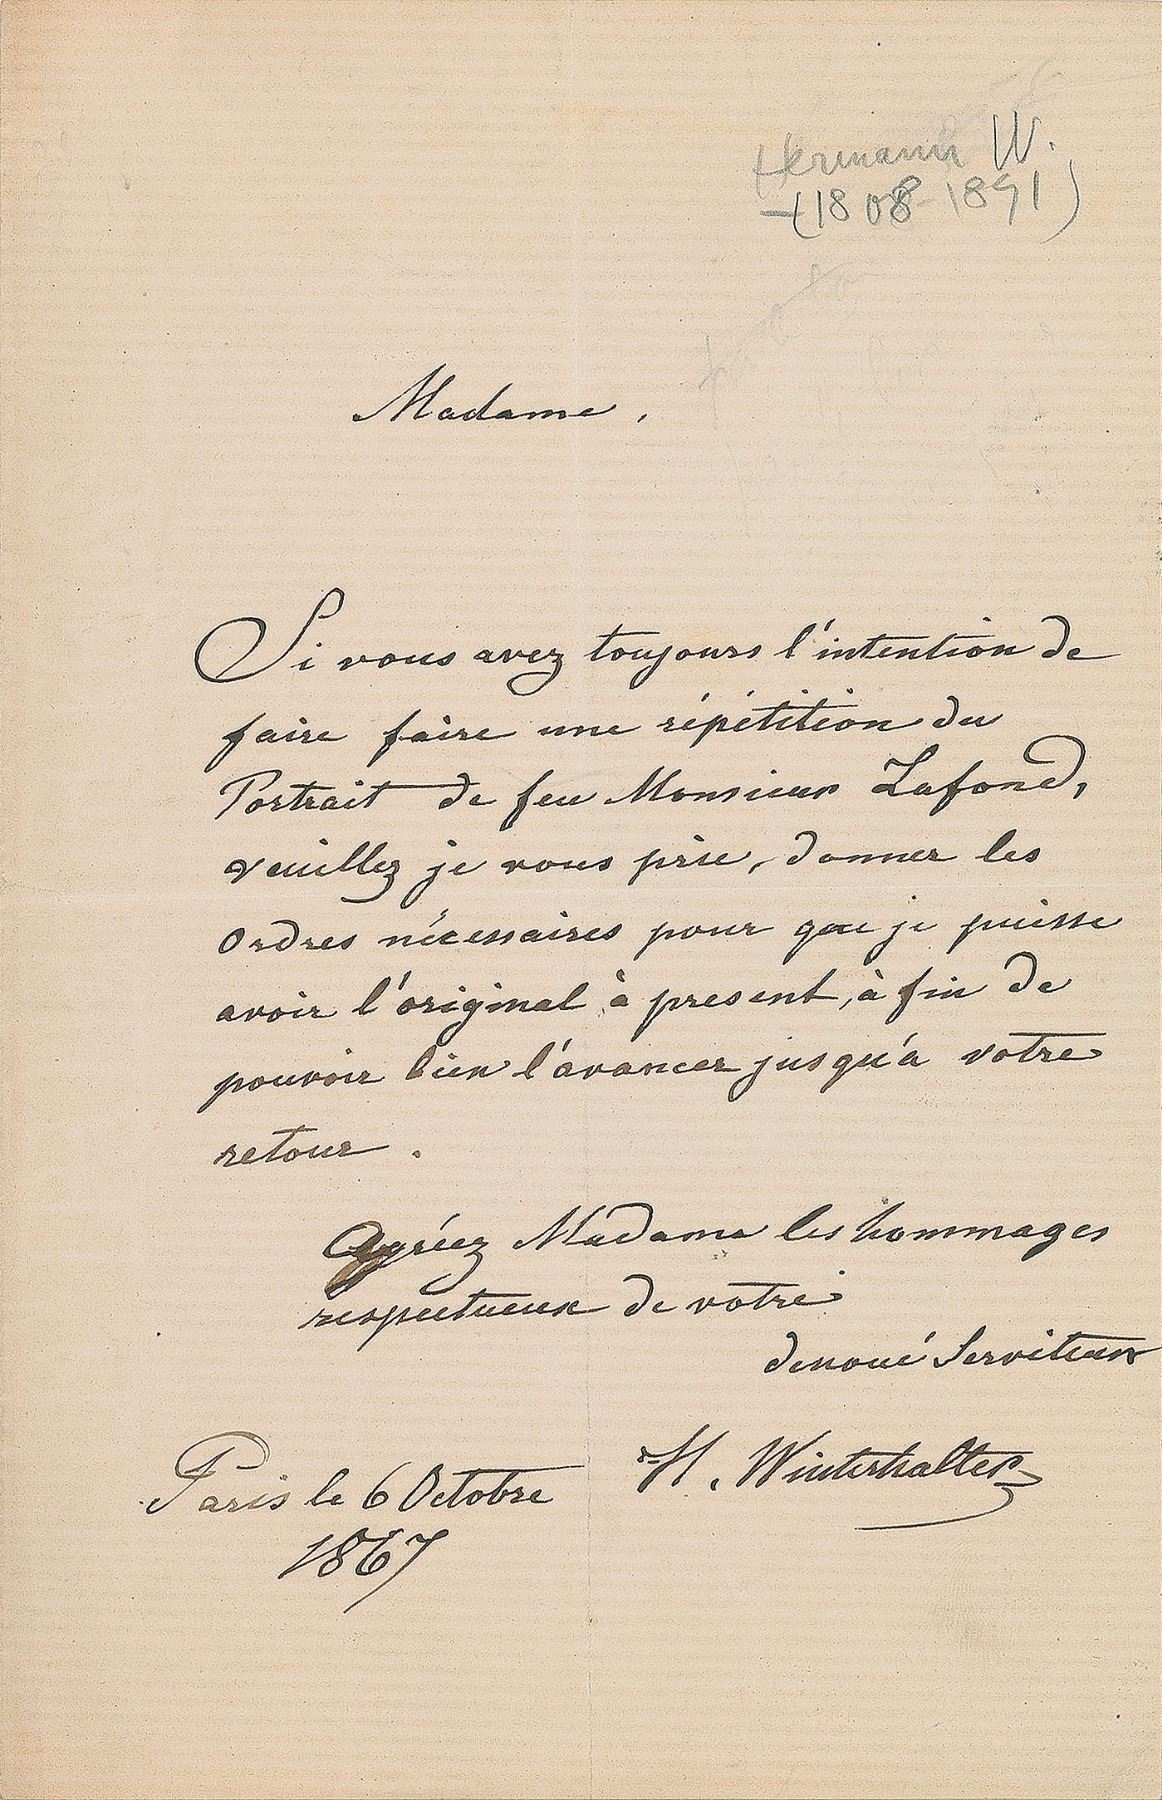 Hermann W.
(1808-1891)
Madame,
Si vous avez toujours l'intention de
faire faire une répétition du
Portrait de feu Monsieur Lafond,
veuillez je vous prie, donner les
Ordres nécessaires pour que je puisse
avoir l'original à present, à fin de
pouvoir bien l'avancer jusqu'a votre
retour.
Agréez Madame les hommages
respectueux de votre
devoué Serviteur
H. Winterhalter
Paris le 6 Octobre
1867